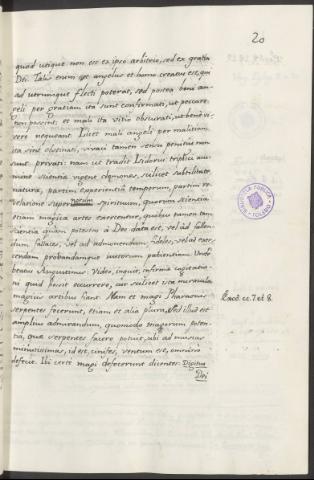 20
quod utique non est ex ipso arbitrio, sed ex gratia
Dei. Talis enim et angelus et homo creatus est, qui
ad utrumque flecti poterat, sed postea boni an-
geli per gratiam ita sunt confirmati, ut peccare
non possint; et mali ita vitio obdurati, ut bene vi-
vere nequeant. Licet mali angeli per malitiam
ita sint obstinati, vivaci tamen sensu penitus non
sunt privati: nam ut tradit Isidorus triplici acu-
mine scientiæ vigent dæmones, scilicet subtilitate
naturæ, partim experientia temporum, partim re-
velatione supernorum spirituum, quorum scientia
etiam magicæ artes exercentur, quibus tamen tam
scientia quam potestas à Deo data est, vel ad fallen-
dum fallaces, vel ad admonendum fideles, vel ad exer-
cendam probandamque iustorum patientiam. Unde
beatus Augustinus. Video, inquit, infirmæ cogitatio-
ni quid possit occurrere, cur scilicet ista miracula
magicis artibus fiant. Nam et magi Pharaonis
serpentes fecerunt, etiam et alia plura, sed illud est
amplius admirandum, quomodo magorum poten-
tia, quæ serpentes facere potuit, ubi ad muscas
minutissimas, id est, cinifes, ventum est, omnino
defecit. Ibi certè magi defecerunt dicentes: Digitus
Dei
Exod. cc. 7. et 8.
BIBLIOTECA PUBLICA
TOLEDO